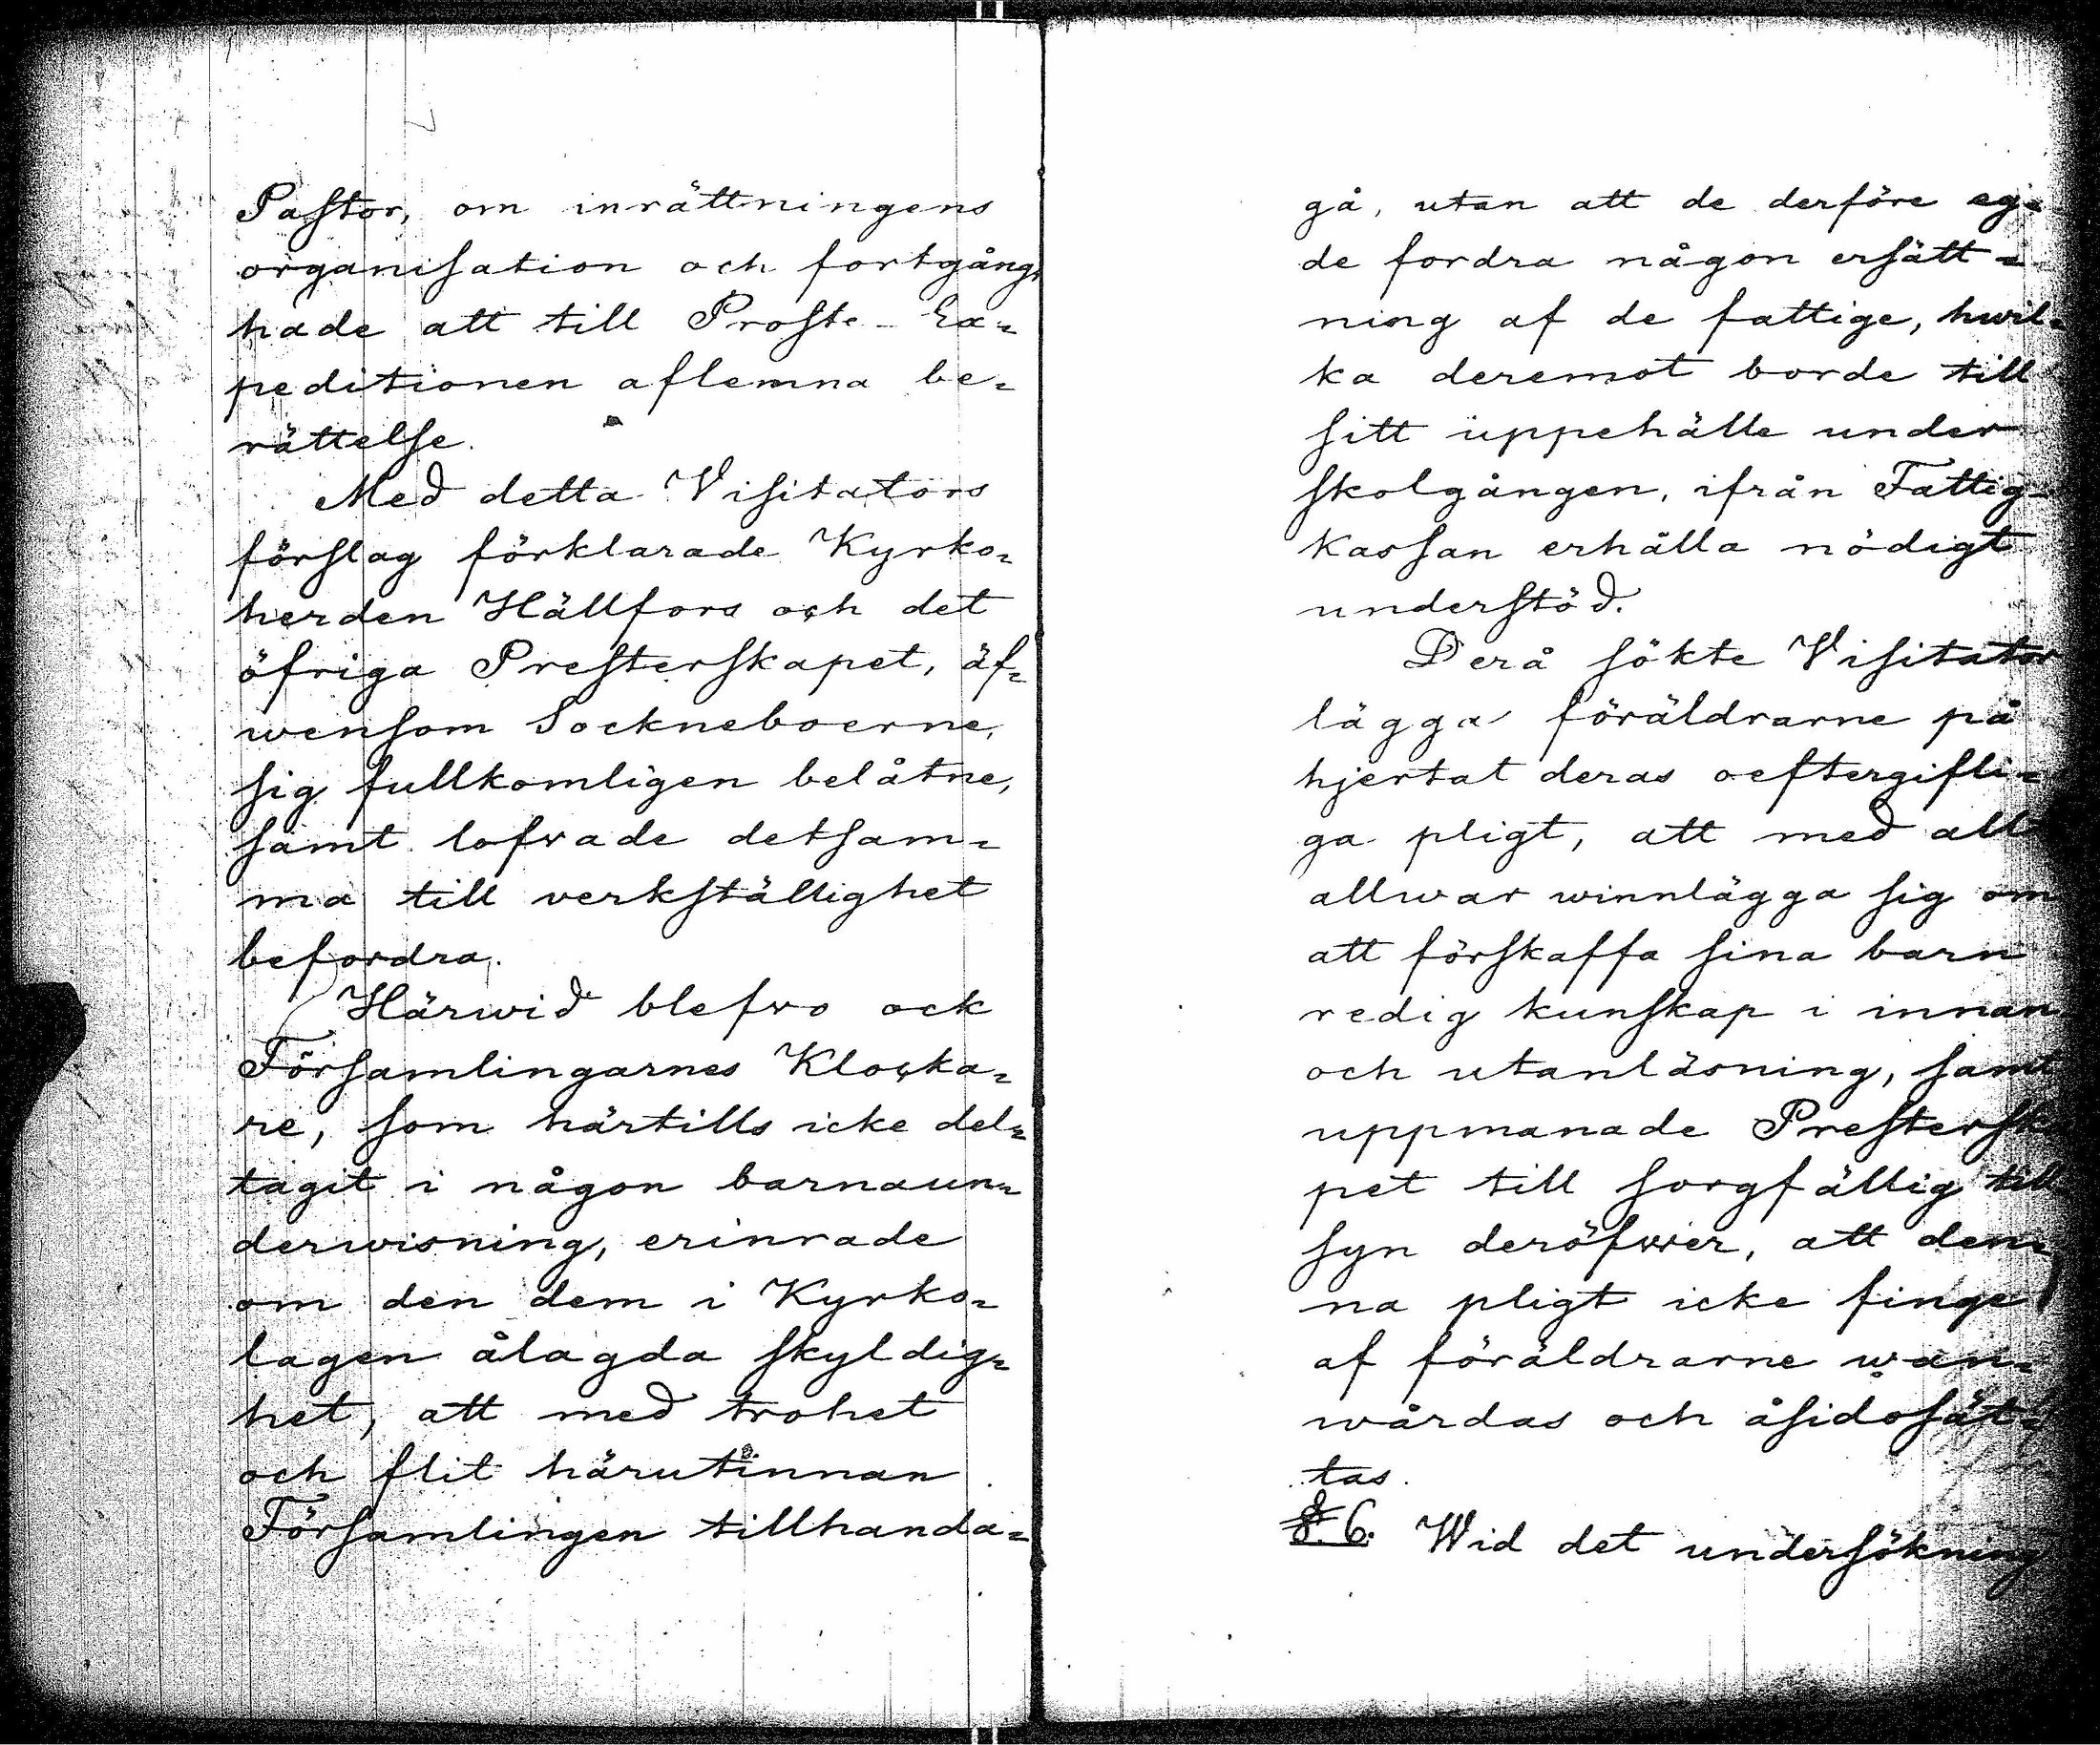 Pastor, om inrättningens
organisation och fortgång,
hade att till Prosts-Ex=
peditionen aflemna be=
rättelse.
Med detta Visitators
förslag förklarade Kyrko=
herden Hällfors och det
öfriga Presterskapet, äf=
wensom Sockneboerne,
sig fullkomligen belåtne,
samt lofvade detsam=
ma till verkställighet
befordra.
Härwid blefvo ock
Församlingarnes Klocka=
re, som härtills icke del=
tagit i någon barnaun=
derwisning, erinrade
om den dem i Kyrko=
lagen ålagda skyldig=
het, att med trohet
och flit härutinnan
Församlingen tillhanda=
gå, utan att de derföre eg=
de fordra någon ersätt=
ning af de fattige, hwil=
ka deremot borde till
sitt uppehälle under
skolgången, ifrån Fattig=
Kassan erhålla nödigt
understöd.
Derå sökte Visitator
lägga föräldrarne på
hjertat deras oeftergifli=
ga pligt, att med allt
allwar winnlägga sig om
att förskaffa sina barn
redig kunskap i innan
och utanläsning, samt
uppmanade Prestersk
pet till sorgfällig till
syn deröfwer, att den=
na pligt icke finge
af föräldrarne wan=
wårdas och åsidosät=
tas.
§. 6. Wid det undersökning